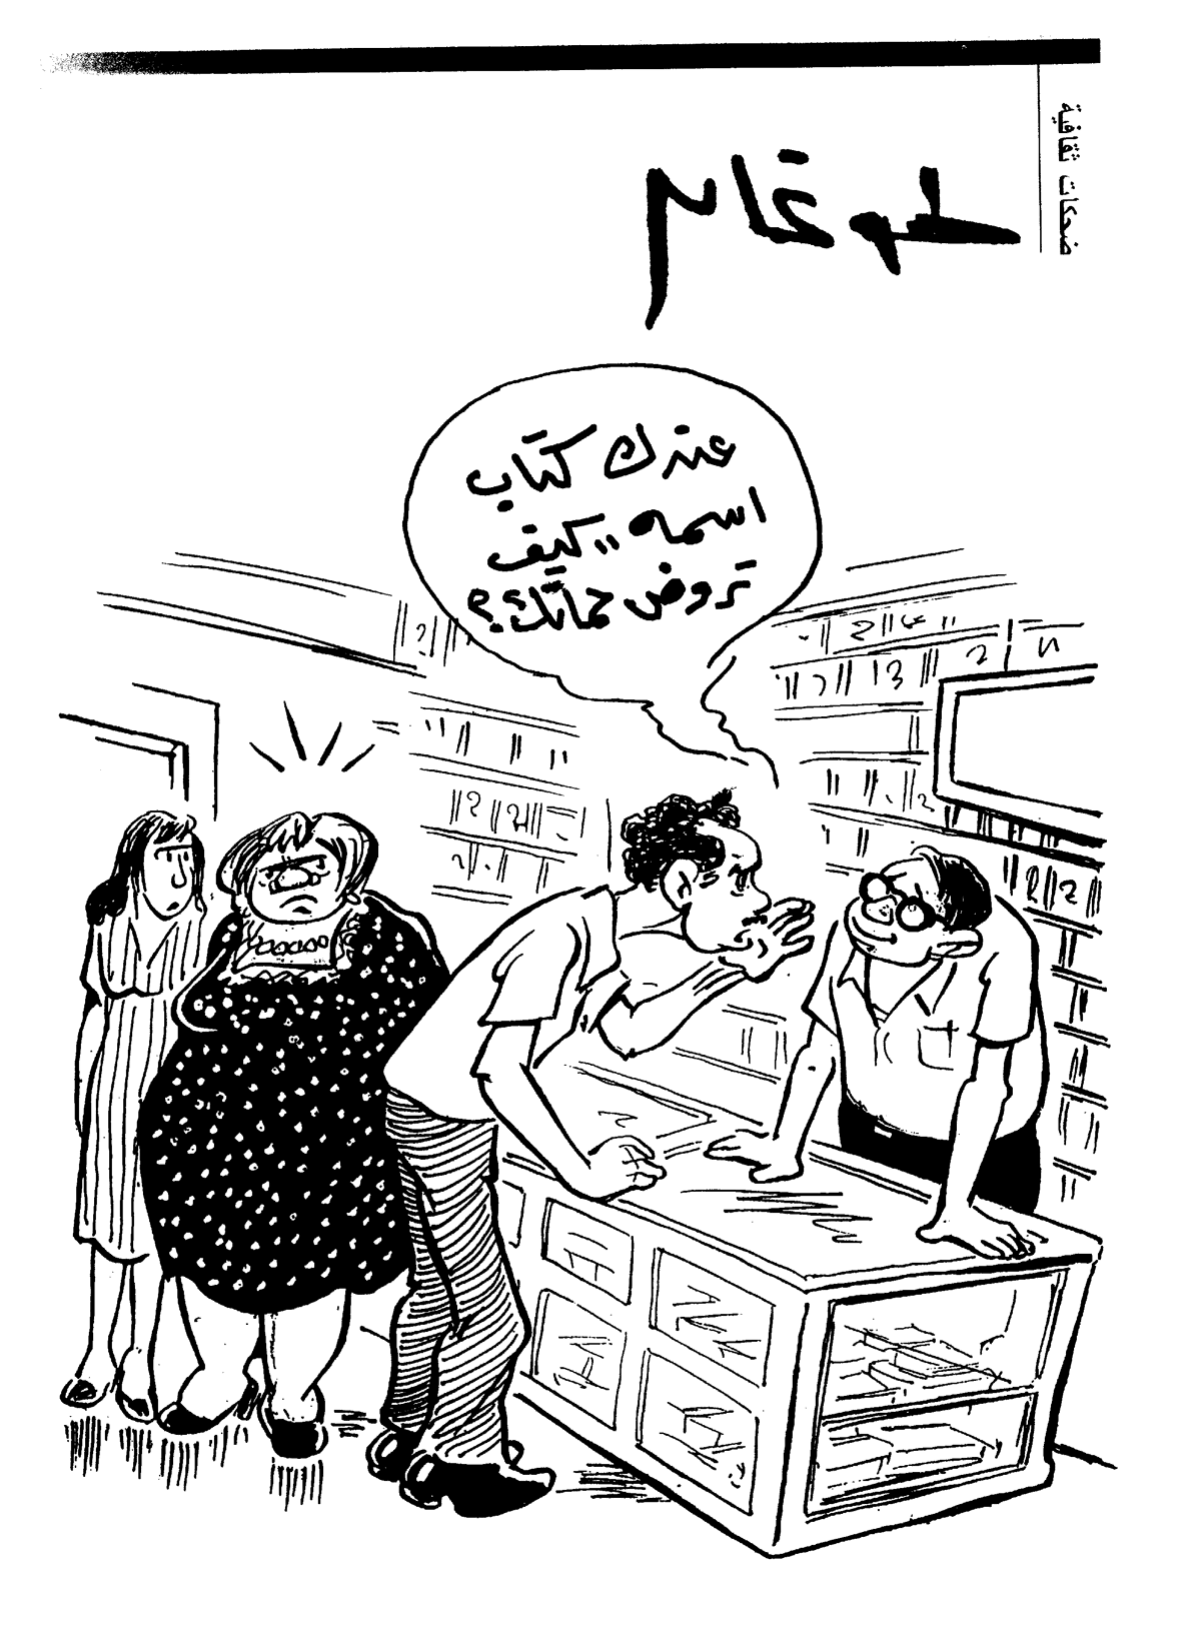 ضحكات ثقافية
طوغان
عندك كتاب
اسمه .. كيف
تروض حماتك؟؟